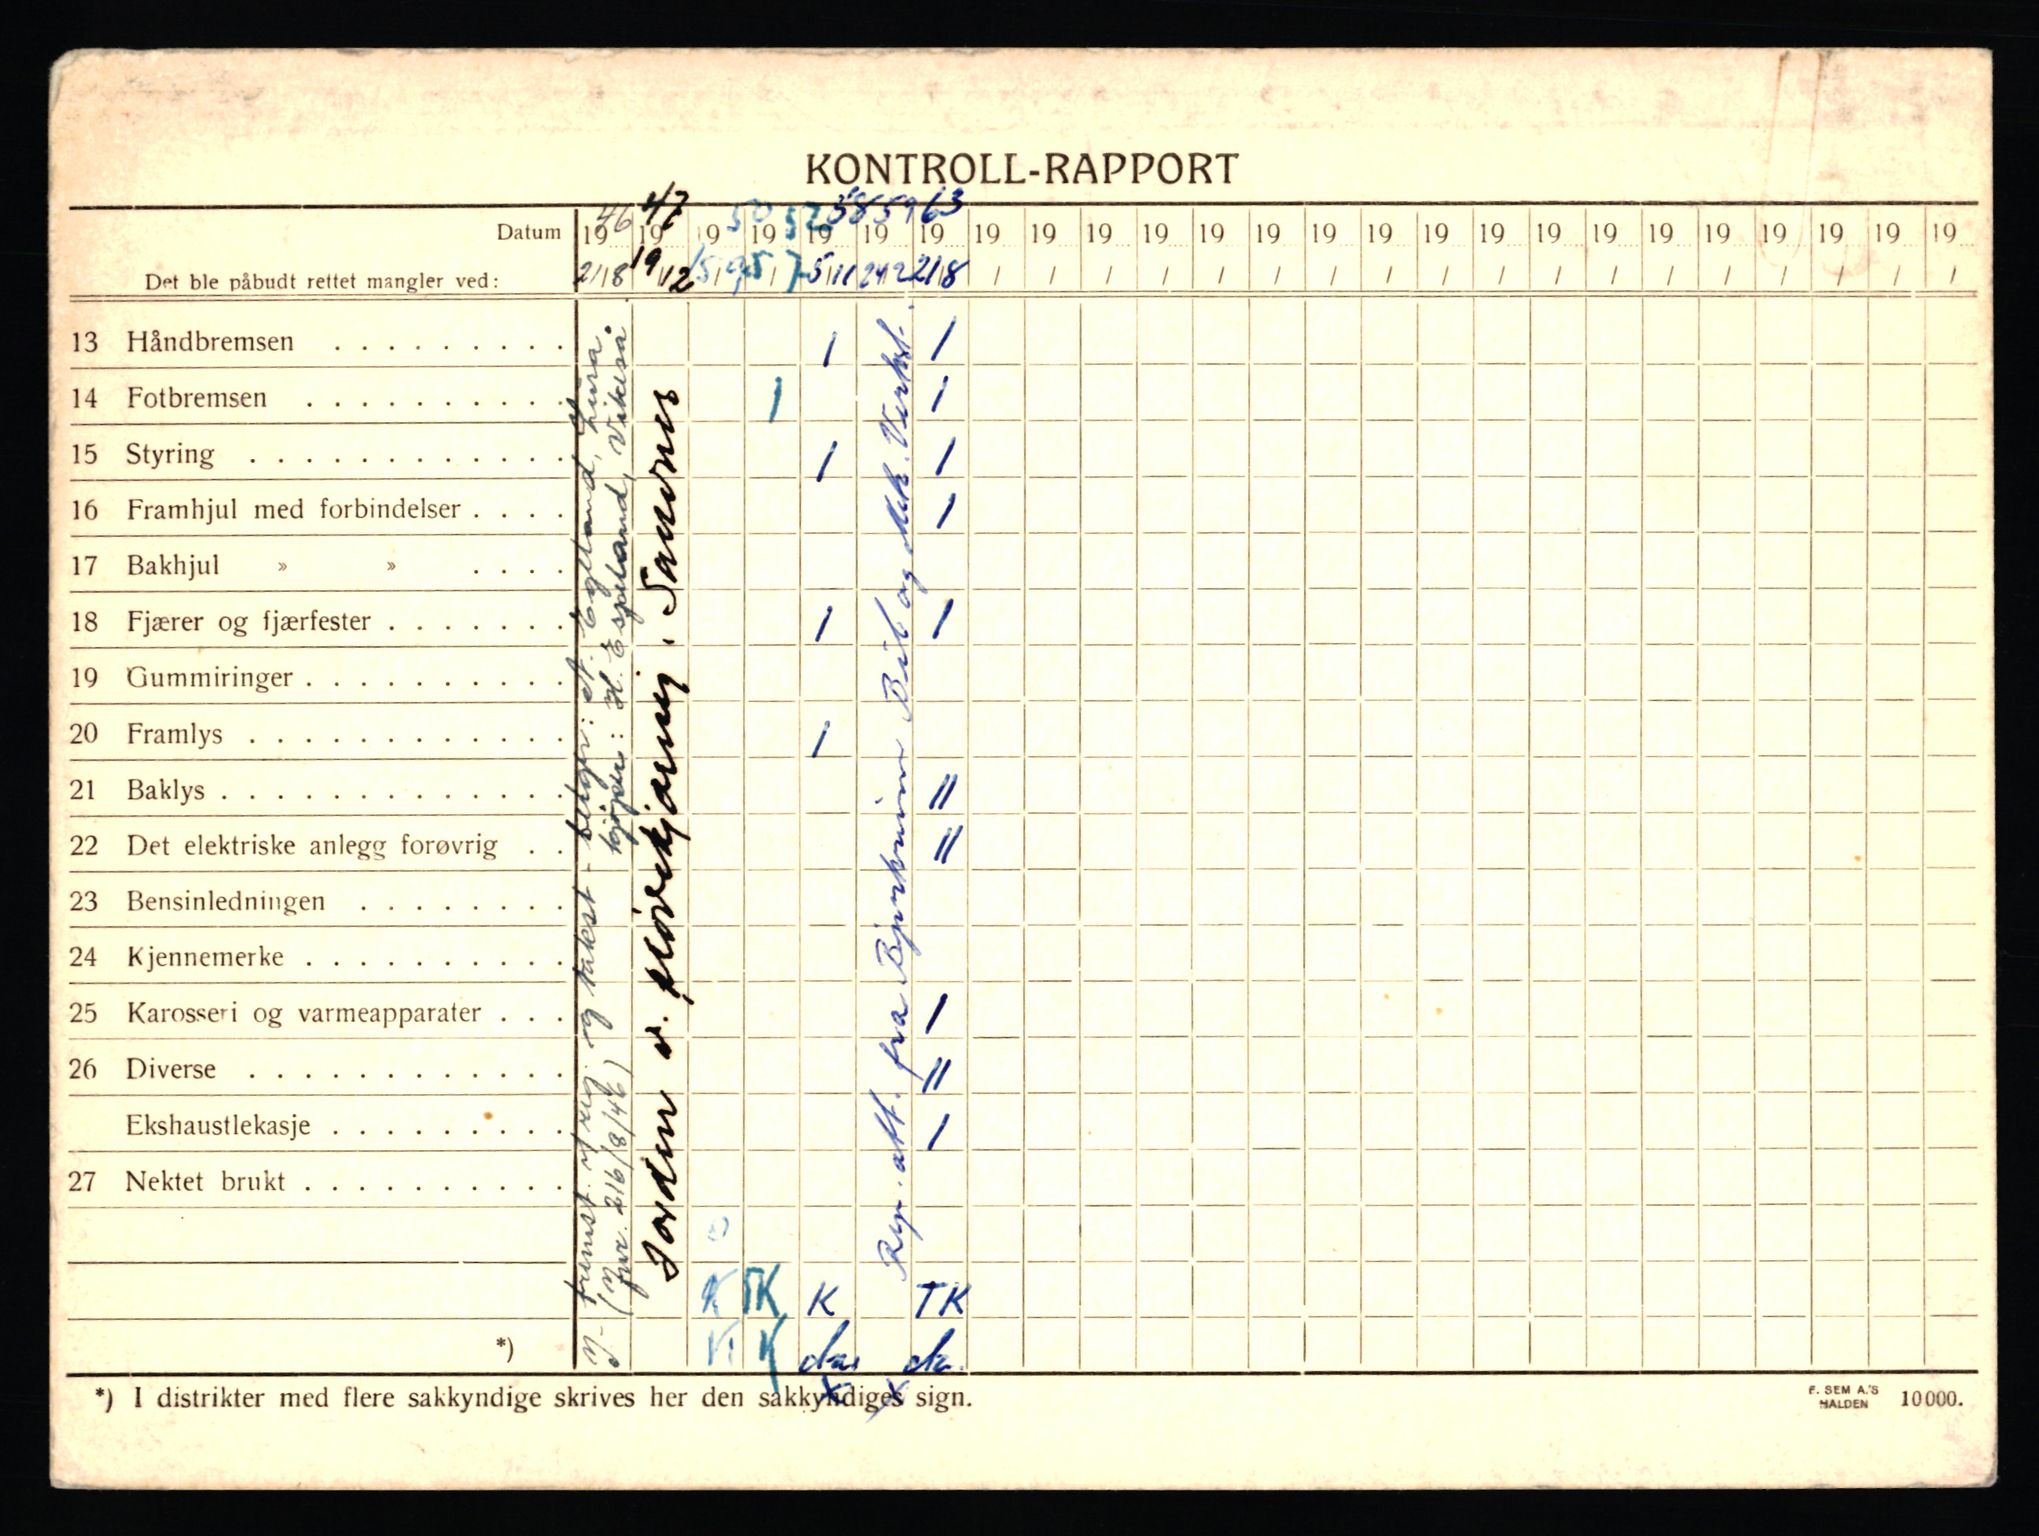 KONTROLL-RAPPORT
Datum 1946 1947 19 50 19 52 19 58 19 59 19 63 19 19 19 19 19 19 19 19 19 19 19 19 19 19 19 19 19 19
Det ble påbudt rettet mangler ved: 2/8 19/12 15/9 5/7 5/11 24/2 21/8 / / / / / / / / / / / / / / / / / /
13 Håndbremsen . . . . . . . . . / /
14 Fotbremsen . . . . . . . . . . / /
15 Styring . . . . . . . . . . . . / /
16 Framhjul med forbindelser . . . . /
17 Bakhjul » » . . . .
18 Fjærer og fjærfester . . . . . . . / /
19 Gummiringer . . . . . . . . . .
20 Framlys . . . . . . . . . . . . /
21 Baklys . . . . . . . . . . . . . //
22 Det elektriske anlegg forøvrig . . //
23 Bensinledningen . . . . . . . . .
24 Kjennemerke . . . . . . . . . .
25 Karosseri og varmeapparater . . . /
26 Diverse . . . . . . . . . . . . //
Ekshaustlekasje . . . . . . . . . . /
27 Nektet brukt . . . . . . . . . .
K TK K TK
*) K da. da.
x x
og takst - selger: Egeland, Lura.
216/8/46) kjøper: H. Espeland, Vikeså.
Jorden v. Sandnes
Rep. att. fra Bjerkreim Bil og Mek. Verkst.
*) I distrikter med flere sakkyndige skrives her den sakkyndiges sign.
F. SEM A.'S
HALDEN 10000.